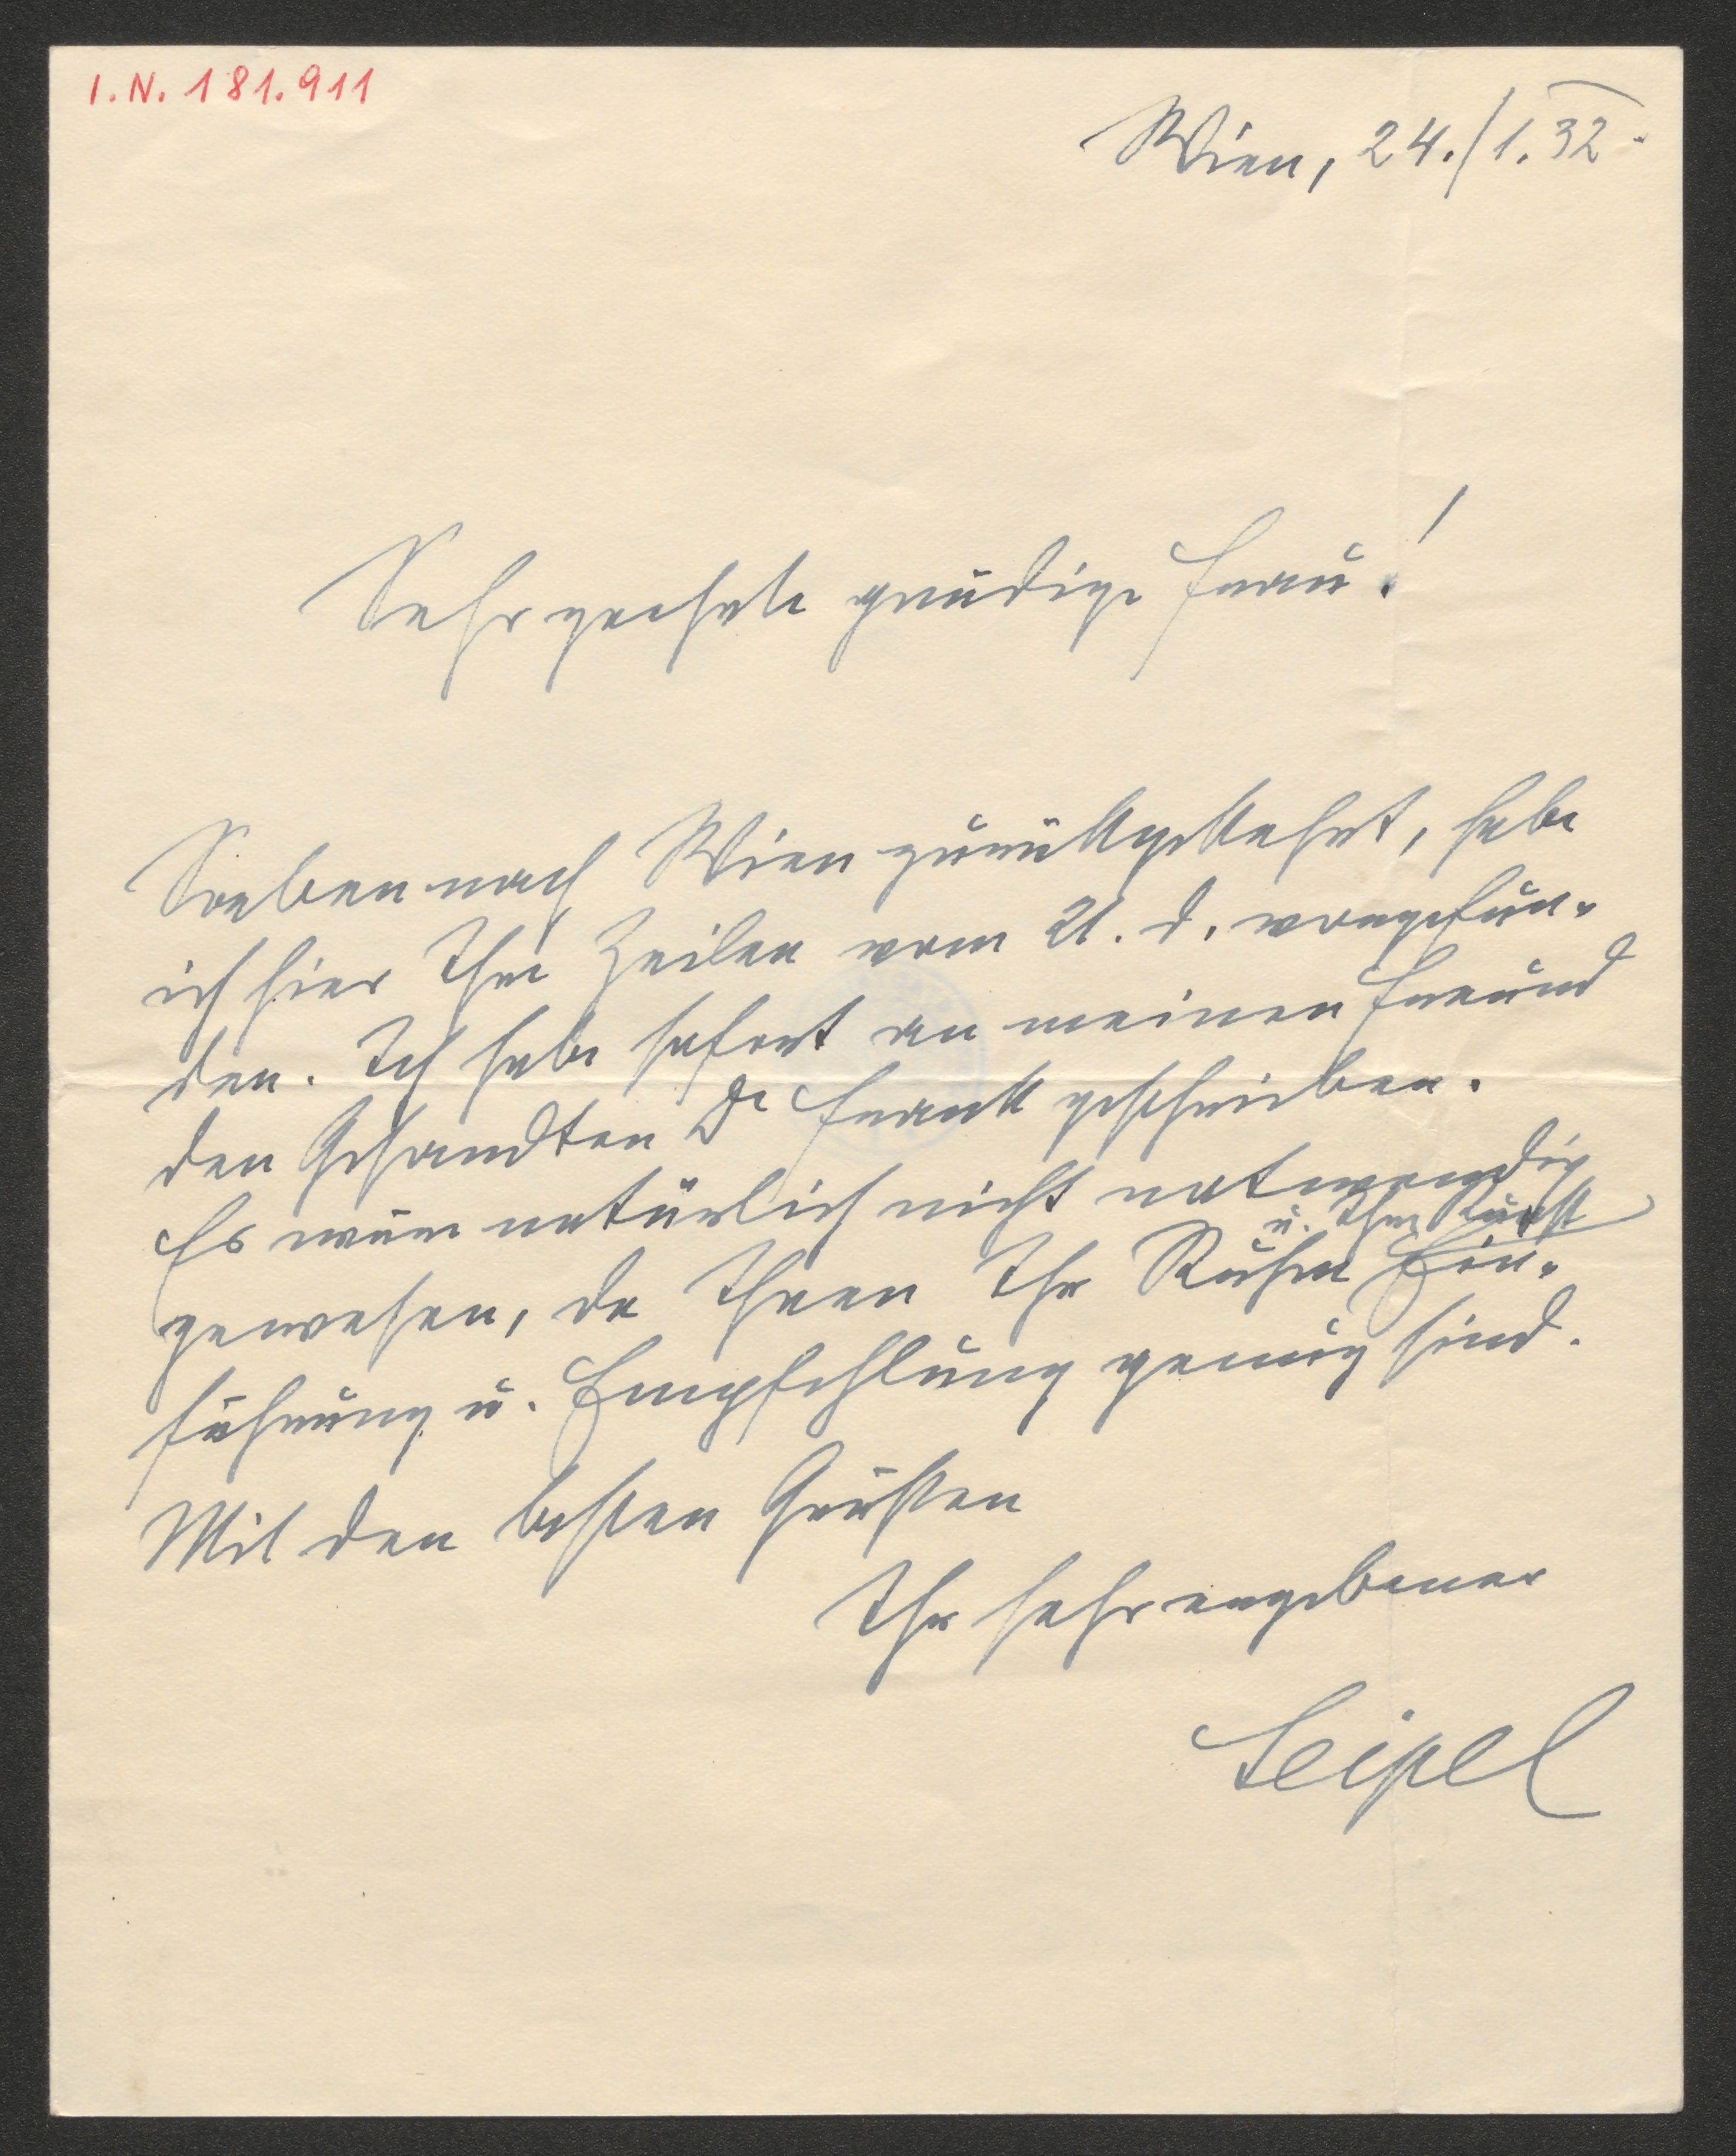 I.N. 181.911
Wien, 24./1. 32.
Sehr geehrte gnädige Frau!
Soeben nach Wien zurückgekehrt, habe
ich hier Ihre Zeilen vom 21. d. vorgefun-
den. Ich habe sofort an meinen Freund
den Gesandten Dr Frank geschrieben.
Es wäre natürlich nicht notwendig
u. Ihre Kunst
gewesen, da Ihnen Ihr Ruhm Ein-
führung u. Empfehlung genug sind.
Mit den besten Grüßen
Ihr sehr ergebener
Seipel